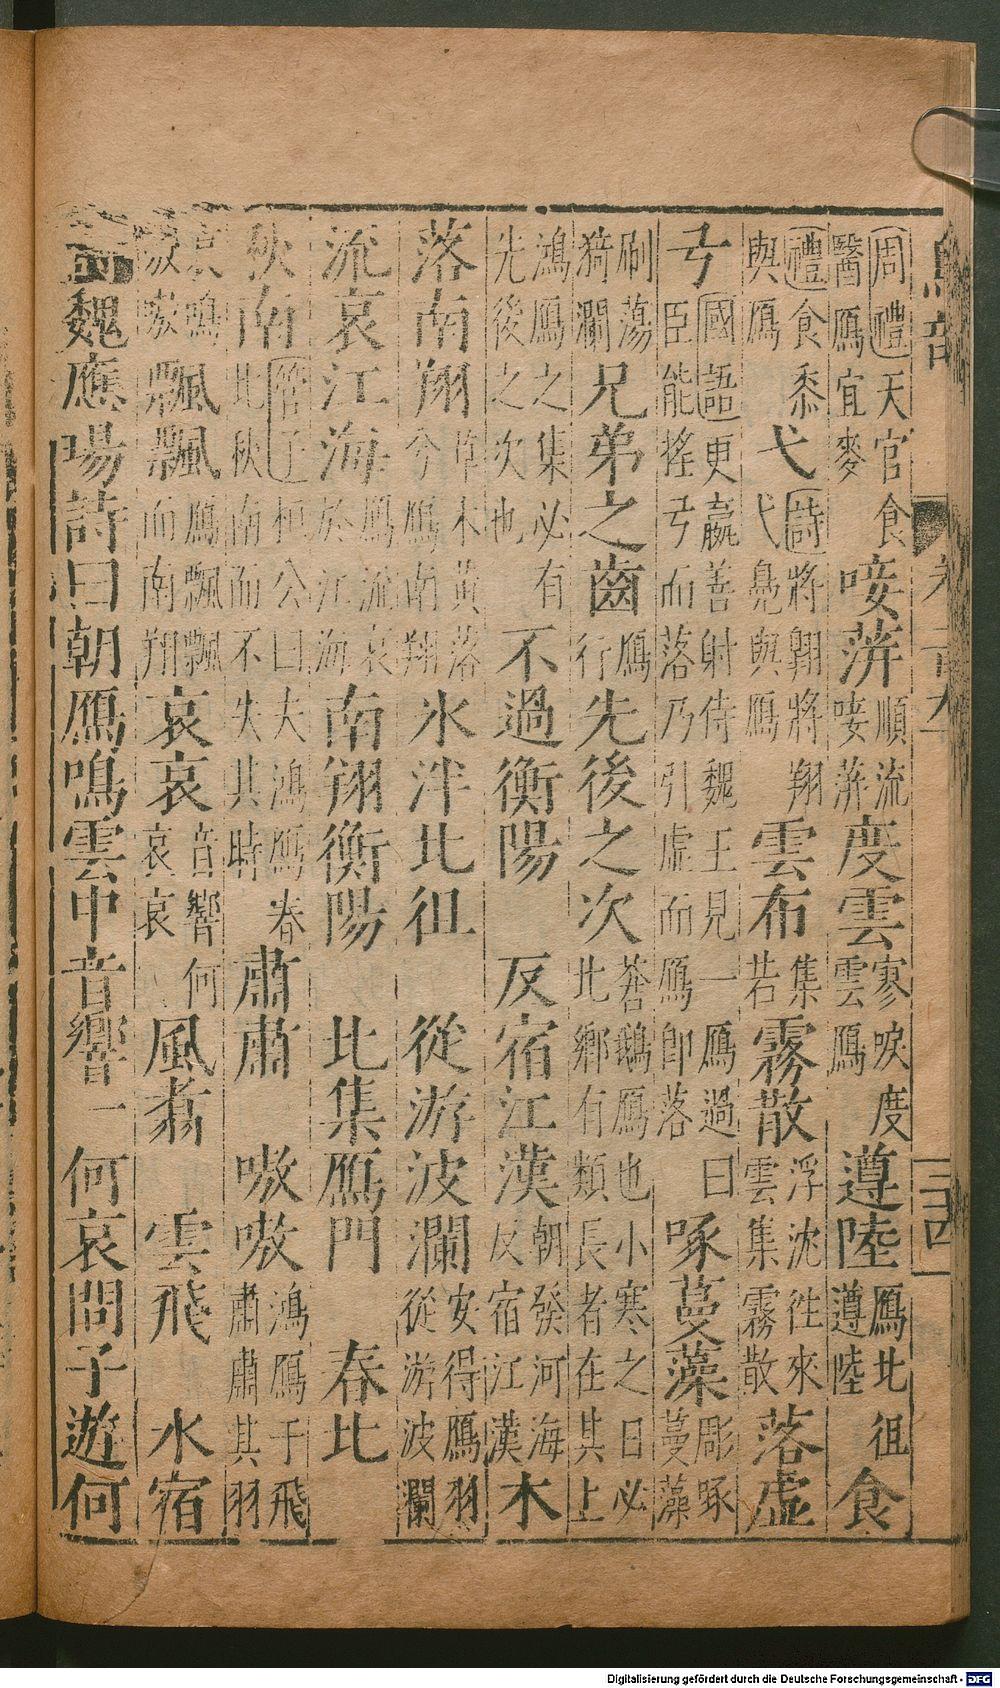 周禮天官食醫鴈宜麥 唼蓱 順流唼蓱 度雲 寒唳度雲鴈 遵陸 鴈北徂遵陸 食
禮食黍與鴈 弋 詩將翺將翔弋鳬與鴈 雲布 集若 霧散 浮沈徃來雲集霧散 落虛
弓 國語更嬴善射侍魏王見一鴈過曰臣能搖弓而落乃引虛而鴈即落 啄蔓藻 彫啄蔓藻
刷蕩猗瀾 兄弟之齒 鴈行 先後之次 蒼鵝鴈也小寒之日必北鄉有類長者在其上
鴻鴈之集必有先後之次也 不過衡陽 反宿江漢 朝發河海反宿江漢 木
落南翔 草木黃落兮鴈南翔 氷泮北徂 從游波瀾 安得鴈羽從游波瀾
流哀江海 鴈流哀於江海 南翔衡陽 北集鴈門 春北
秋南 管子桓公曰夫鴻鴈春北秋南而不失其時 肅肅 嗷嗷 鴻鴈于飛肅肅其羽
哀鳴嗷嗷 飄飄 鴈飄飄而南翔 哀哀 音響何哀哀 風翥 雲飛 水宿
魏應瑒詩曰朝鴈鳴雲中音響一何哀問子遊何
鳥部
三四
Digitalisierung gefördert durch die Deutsche Forschungsgemeinschaft - DFG